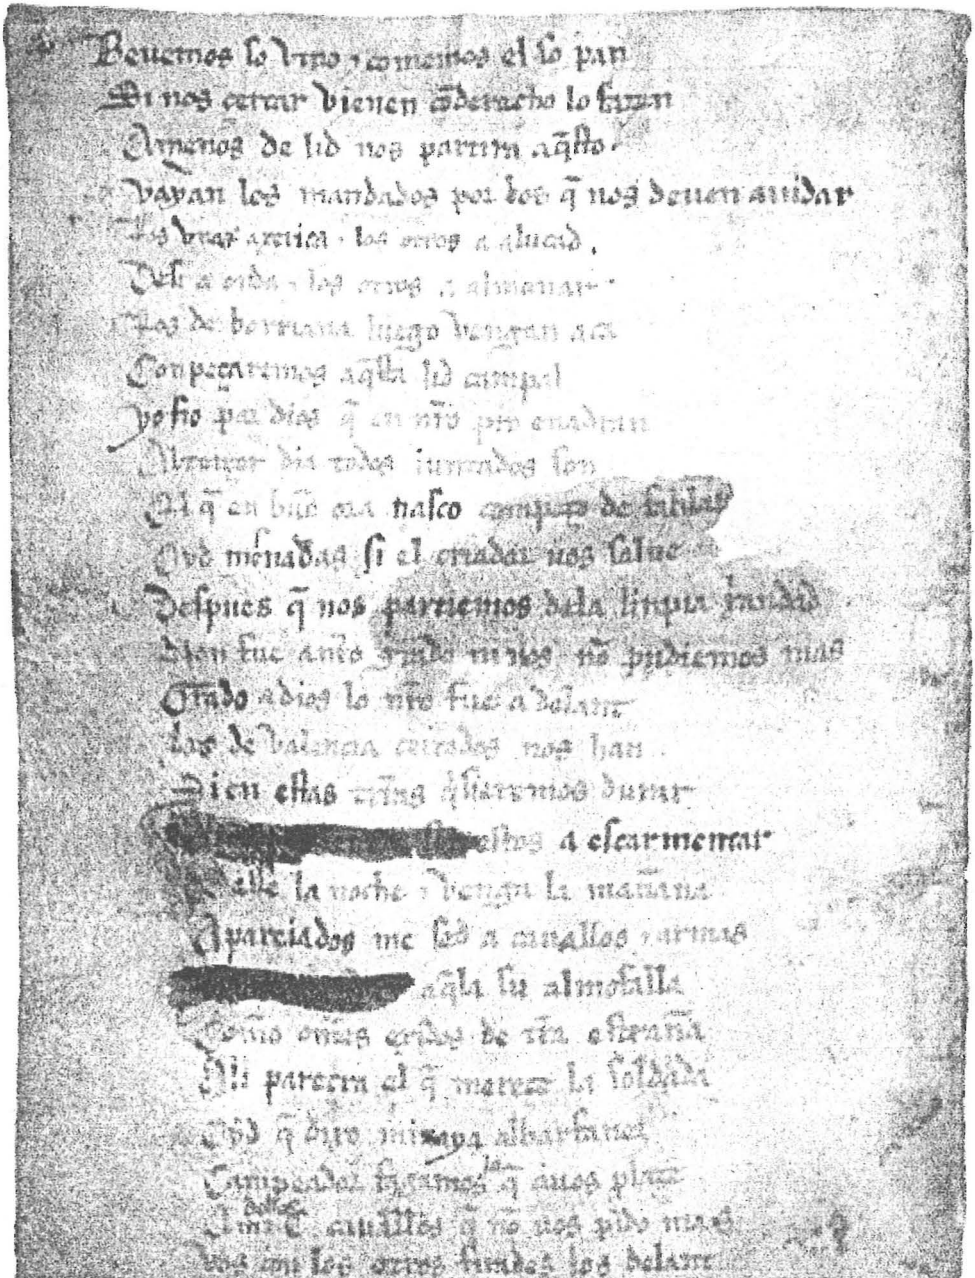 Beuemos so vino ⁊ comemos el so pan
Si nos çercar vienen cõ derecho lo fazen
Amenos de lid nos partira aq̃sto
Vayan los mandados por los q̃ nos deuen aiudar
Los vnos axerica ⁊ los otros a alucad
Desi a onda ⁊ los otros a almenar
Los de borriana luego vengan aca
Conpeçaremos aq̃sta lid campal
Yo fio por dios q̃ en nr̃o pro enadran
Al terçer dia todos iuntados son
El q̃ en buẽ ora nasco compeço de fablar
Oyd mesnadas si el criador uos salue
Despues q̃ nos partiemos dela linpia xp̃iandad
Non fue a nr̃o grado ni nos nõ pudiemos mas
Grado a dios lo nr̃o fue adelant
Los de valencia cercados nos han
Si en estas tr̃ras q̃sieremos durar
estos a escarmentar
la noche ⁊ venga la mañana
Apareiados me sed a cauallos ⁊ armas
aq̃la su almofalla
Commo om̃es exidos de tr̃ra estraña
Ali pareçra el q̃ mereçe la soldada
Oyd q̃ dixo minaya albarfanez
Campeador fagamos lo q̃ auos plaze
A mi dedes .C. caualłos q̃ nõ uos pido mas
Vos con los otros firades los delant